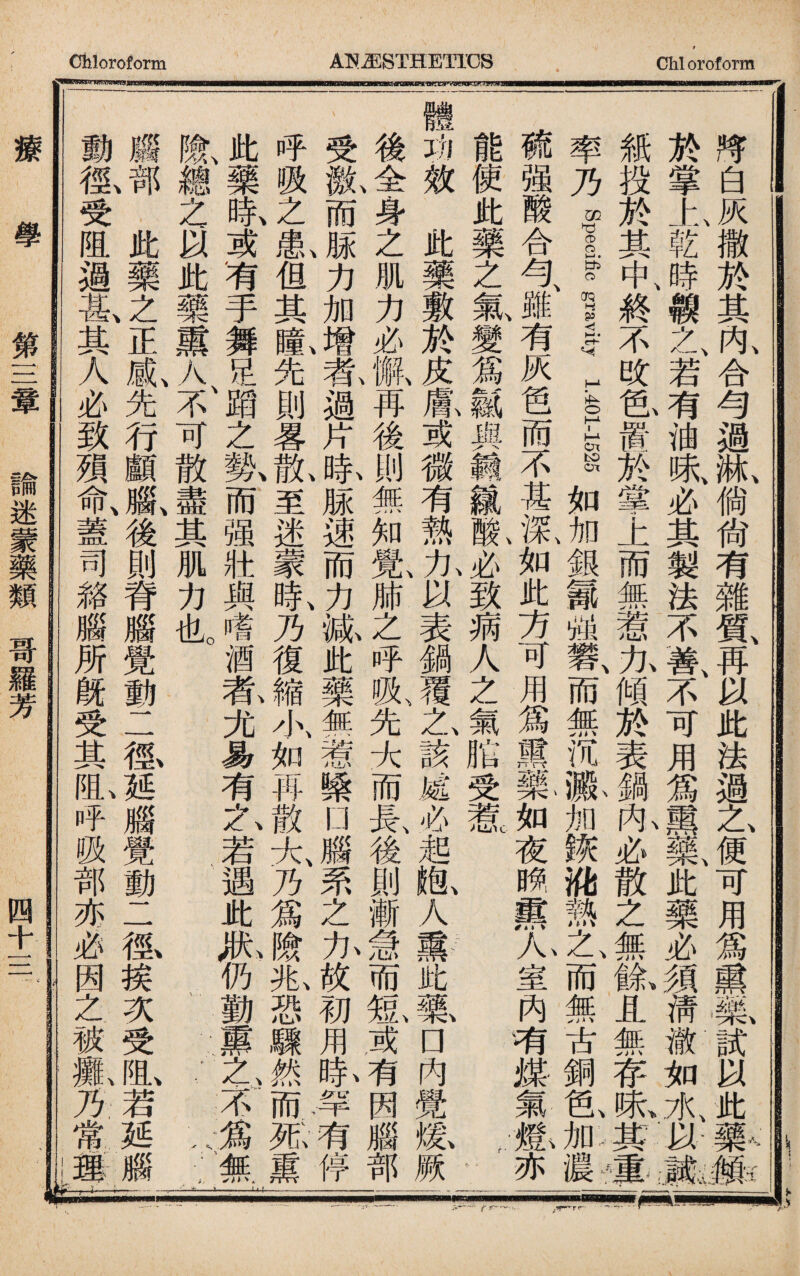 Chloroform
ANÆSTHETICS
Chloroform
將白灰撒於其內、合勻過淋、倘尙有雜質、再以此法過之、便可用爲熏藥、試以此藥傾
於掌上、乾時齅之、若有油味、必其製法不善、不可用爲熏藥、此藥必須淸澈如水、以試
紙投於其中、終不改色、置於掌上而無惹力、傾於表鍋內、必散之無餘、且無存味、其重
率乃 Specific gravity 1.401-1525 如加銀䓿强礬、而無沉澱、加鉄㶨熱之、而無古銅色、加濃
硫强酸合勻、雖有灰色而不甚深、如此方可用爲熏藥、如夜晚熏人、室內有煤氣燈、亦
能使此藥之氣、變爲與酸、必致病人之氣䏓受惹。
體功效 此藥敷於皮膚、或微有熱力、以表鍋覆之、該處必起皰、人熏此藥、口內覺煖、厥
後全身之肌力必懈、再後則無知覺、肺之呼吸、先大而長、後則漸急而短、或有因腦部
受激、而脉力加增者、過片時、脉速而力減、此藥無惹緊口腦系之力、故初用時、罕有停
呼吸之患、但其瞳、先則畧散、至迷蒙時、乃復縮小、如再散大、乃爲險兆、恐驟然而死、熏
此藥時、或有手舞足蹈之勢、而强壯與嗜酒者、尤易有之、若遇此狀、仍勤熏之、不爲無
險、總之以此藥熏人、不可散盡其肌力也。
腦部 此藥之正感、先行顱腦、後則脊腦覺動二徑、延腦覺動二徑、挨次受阻、若延腦
動徑、受阻過甚、其人必致殞命、蓋司絡腦所旣受其阻、呼吸部亦必因之被癱、乃常理
療學 第三章 論迷蒙藥類 哥羅芳 四十三